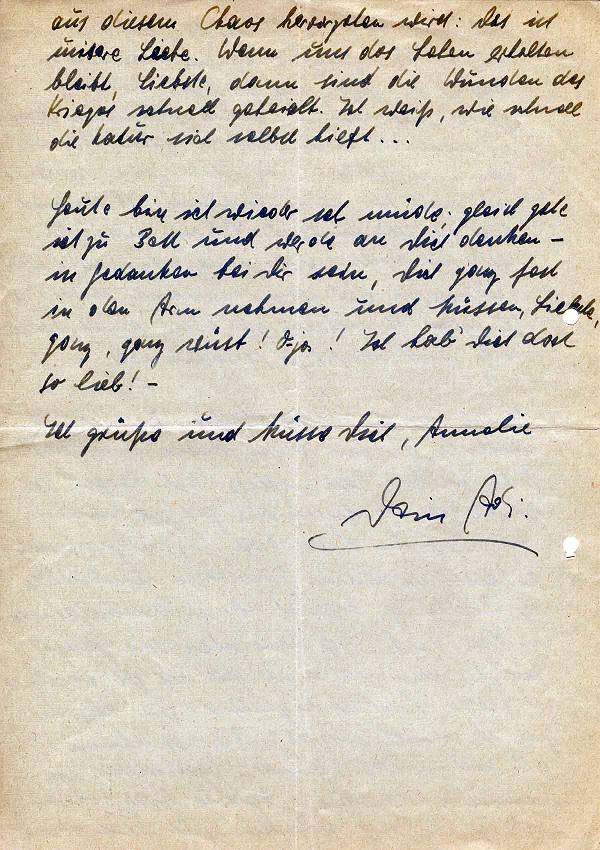 aus diesem Chaos hervorgehen wird: das ist
unsere Liebe. Wenn uns das Leben erhalten
bleibt, Liebste, dann sind die Wunden des
Krieges schnell geheilt. Ich weiß, wie schnell
die Natur sich selbst hilft...
Heute bin ich wieder sehr müde; gleich gehe
ich zu Bett und werde an Dich denken –
in Gedanken bei Dir sein, Dich ganz fest
in den Arm nehmen und küssen, Liebste,
ganz, ganz wüst! O ja! Ich hab' Dich doch
so lieb! –
Ich grüße und küsse Dich, Annelie
Dein Adi.